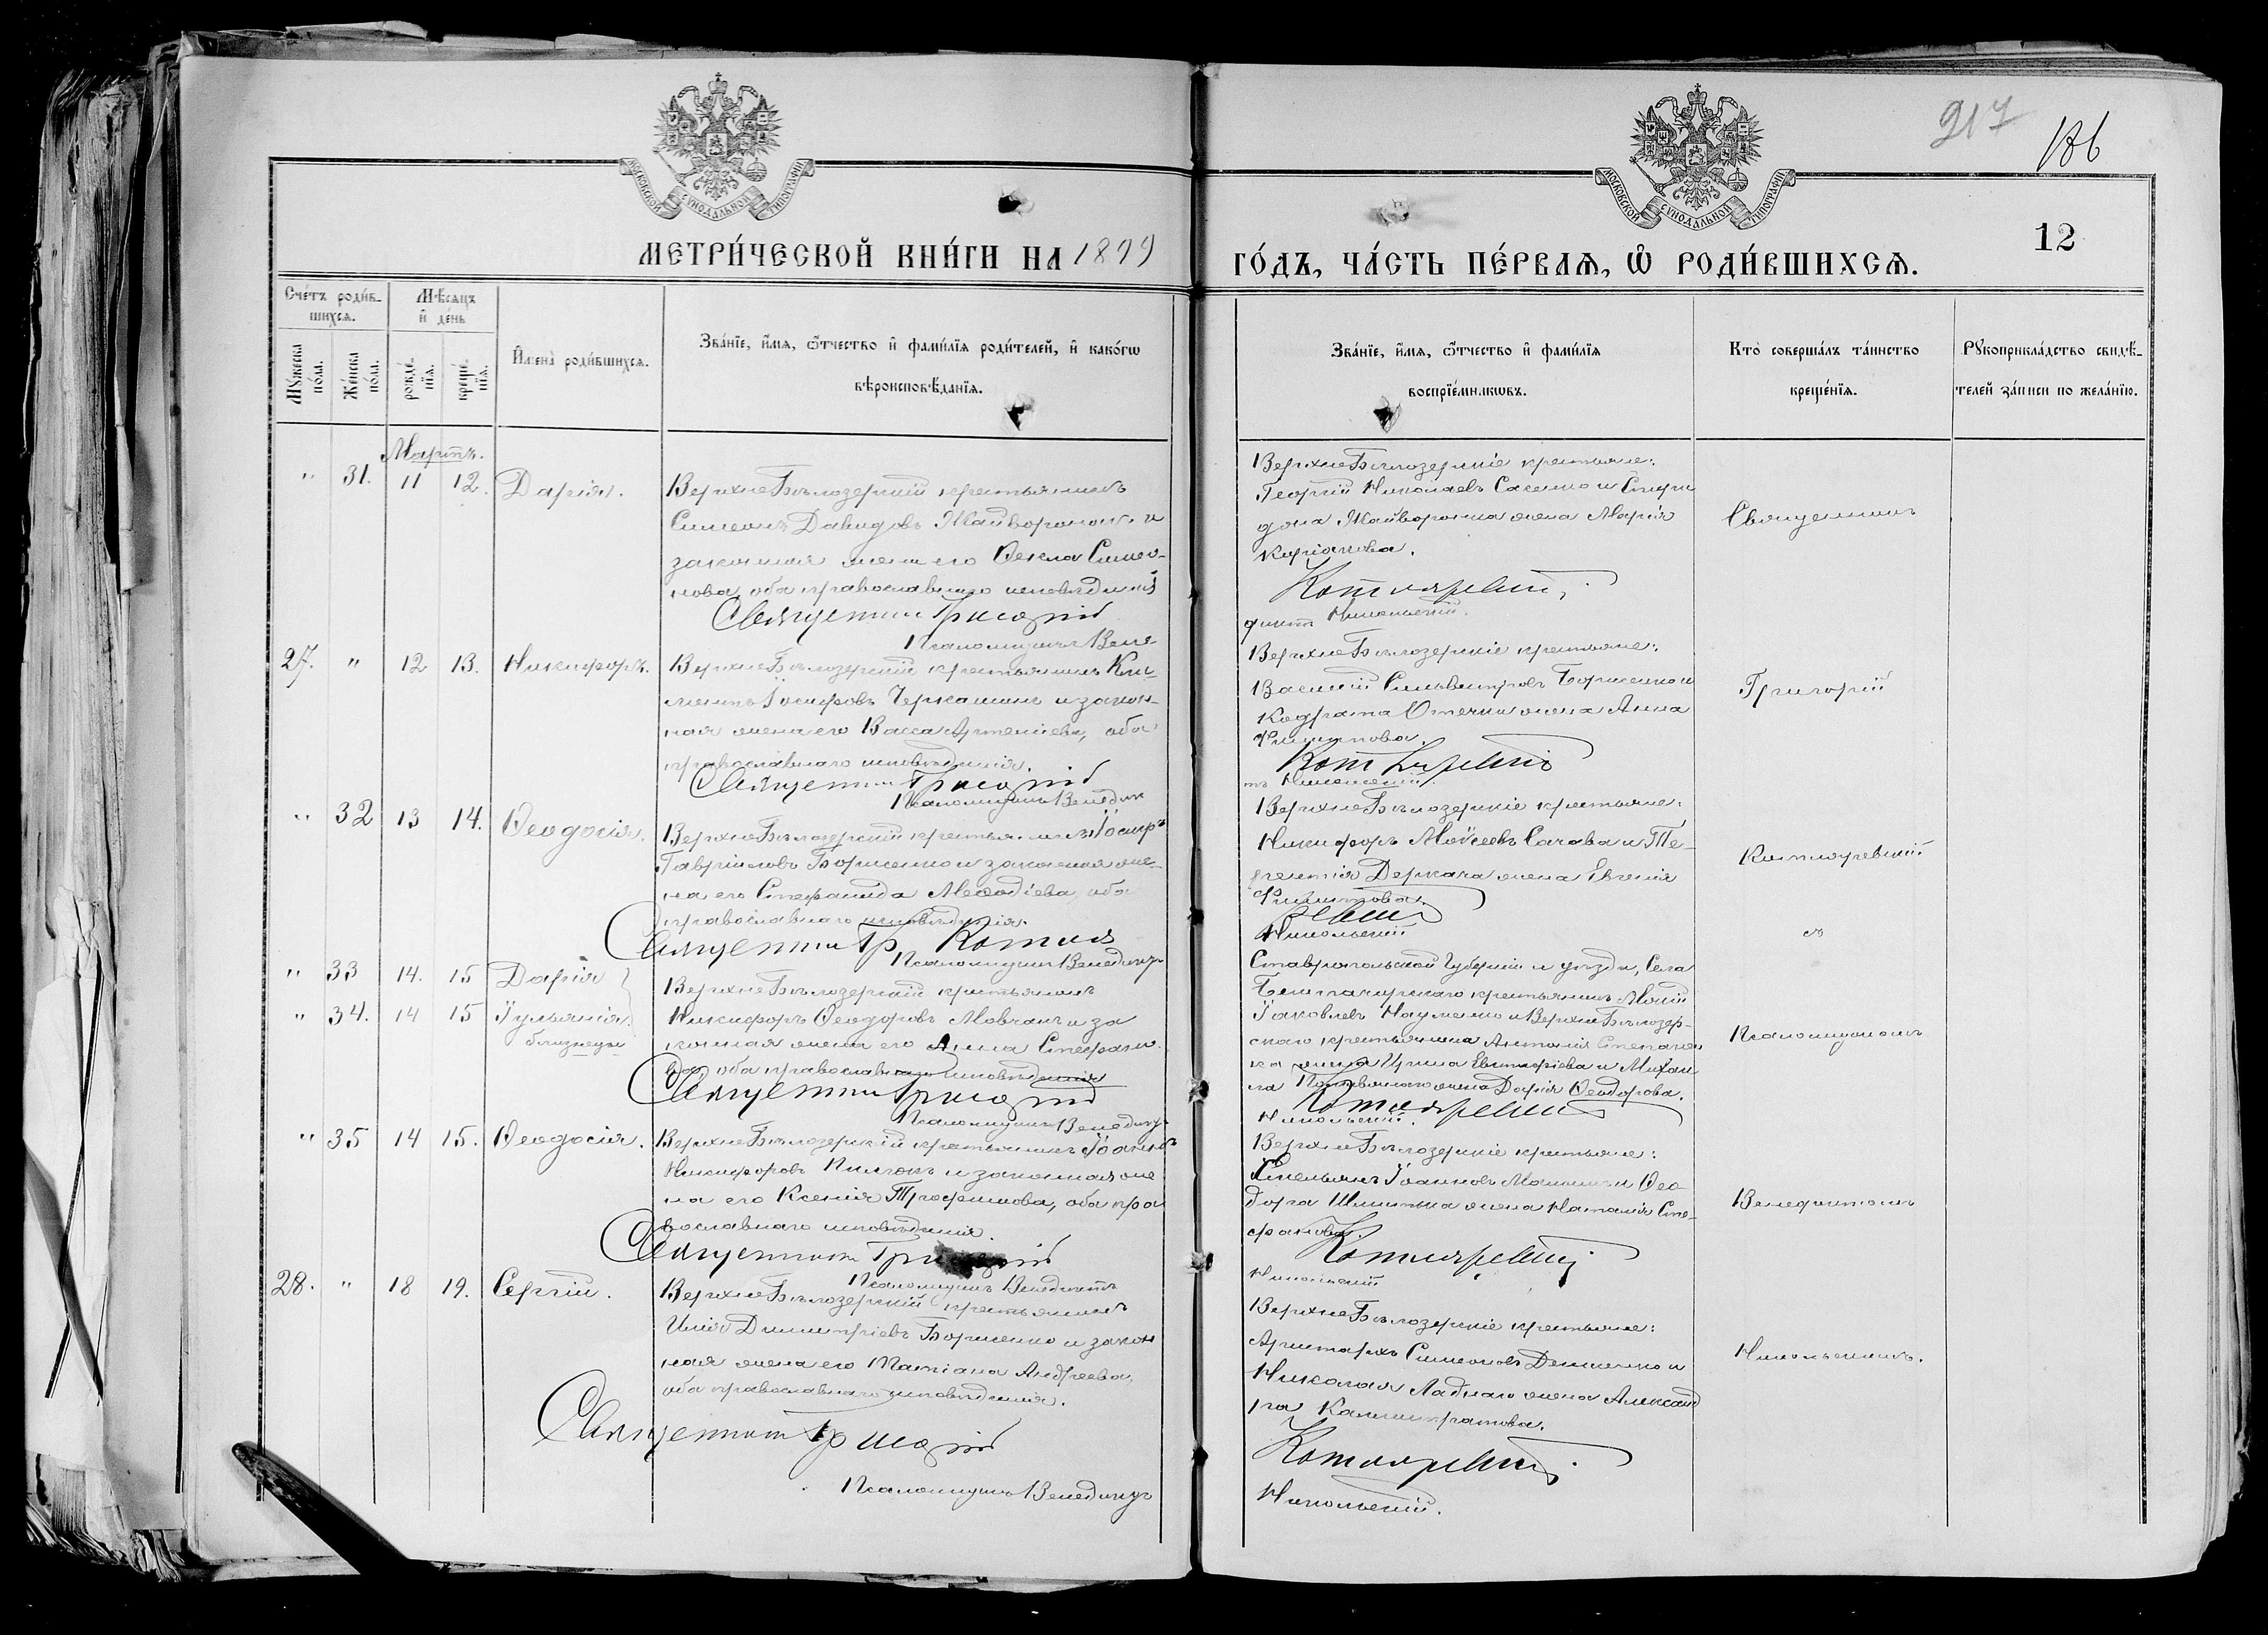 217
186
12
МОСКОВСКОЙ СѴНОДАЛЬНОЙ ТИПОГРАФІИ
МОСКОВСКОЙ СѴНОДАЛЬНОЙ ТИПОГРАФІИ
МЕТРИ́ЧЕСКОЙ КНИ́ГИ НА 1899
ГО́ДЪ, ЧА́СТЬ ПЕ́РВАѦ, Ѡ҆ РОДИ́ВШИХСѦ.
Сче́тъ роди́в-
шихсѧ.
Мѣ́сѧцъ
и҆ де́нь
Мꙋ́жеска
по́ла.
Же́нска
по́ла.
рожде́-
нїѧ.
креще́-
нїѧ.
И҆мена̀ роди́вшихсѧ.
Зва́нїе, и҆́мѧ, ѻ҆́тчество и҆ фами́лїѧ роди́телей, и҆ како́гѡ
вѣроисповѣ́данїѧ.
Зва́нїе, и҆́мѧ, ѻ҆́тчество и҆ фами́лїѧ
воспрїе́мникѡвъ.
Кто̀ соверша́лъ та́инство
креще́нїѧ.
Рꙋкоприкла́дство свидѣ́-
телей за́писи по жела́нїю.
Мартъ.
" 31. 11 12. Дарія.
ВерхнеБѣлозерскій крестьянинъ
Симеонъ Давидовъ Жайворонокъ и
законная жена его Ѳекла Симео-
нова, оба православнаго исповѣданія
Священникъ Григорій
Псаломщикъ Вене-
ВерхнеБѣлозерскіе крестьяне:
Георгій Николаевъ Сасенко и Спири
дона Жайворонка жена Марія
Киріакова.
Котляревскій
диктъ Никольскій.
Священникъ
27. " 12 13. Никифоръ.
ВерхнеБѣлозерскій крестьянинъ Кли-
ментъ Іосифовъ Черкашинъ и закон-
ная жена его Васса Артеміева, оба
православнаго исповѣданія.
Священникъ Григорій
Псаломщикъ Венедик
ВерхнеБѣлозерскіе крестьяне:
Василій Сильвестровъ Борисенко и
Кодрата жена Анна
Филиппова.
Котляревскій
тъ Никольскій.
Григорій
" 32 13 14. Ѳеодосія.
ВерхнеБѣлозерскій крестьянинъ Іосифъ
Гавріиловъ Борисенко и законная же-
на его Стефанида Меѳодіева, оба
православнаго исповѣданія.
Священникъ Гр. Котля
Псаломщикъ Венедиктъ
ВерхнеБѣлозерскіе крестьяне:
Никифоръ Моѵсеевъ Сачава и Те-
рентія Деркача жена Евгенія
Филиппова.
ревскій
Никольскій
Котляревскій
съ
" 33 14. 15 Дарія
" 34. 14 15 Іуліанія
близнецы
ВерхнеБѣлозерскій крестьянинъ
Никифоръ Ѳеодоровъ Мовчанъ и за
конная жена его Анна Стефано-
ва, оба православнаго исповѣданія
Священникъ Григорій
Псаломщикъ Венедиктъ
Ставропольской Губерніи и уѣзда, Села
Бешпагирскаго крестьянинъ Мокій
Іаковлевъ Науменко и ВерхнеБѣлозер-
скаго крестьянина Антонія Степанен
ка жена Ирина Евтихіева и Михаи
ла жена Дарія Ѳеодорова.
Котляревскій
Никольскій.
Псаломщикомъ
" 35 14 15. Ѳеодосія.
ВерхнеБѣлозерскій крестьянинъ Іоаннъ
Никифоровъ и законная же
на его Ксенія Трофимова, оба пра
вославнаго исповѣданія.
Священникъ Григорій
Псаломщикъ Венедиктъ
ВерхнеБѣлозерскіе крестьяне:
Емельянъ Іоанновъ и Ѳео
дора жена Наталія Сте-
фанова.
Котляревскій
Никольскій
Венедиктомъ
28. " 18 19. Сергій.
ВерхнеБѣлозерскій крестьянинъ
Илія Димитріевъ Борисенко и закон
ная жена его Татіана Андреева,
оба православнаго исповѣданія.
Священникъ Григорій
Псаломщикъ Венедиктъ
ВерхнеБѣлозерскіе крестьяне:
Аристархъ Симеоновъ Демченко и
Николая Ладнаго жена Александ
ра Каллистратова.
Котляревскій
Никольскій.
Никольскимъ.